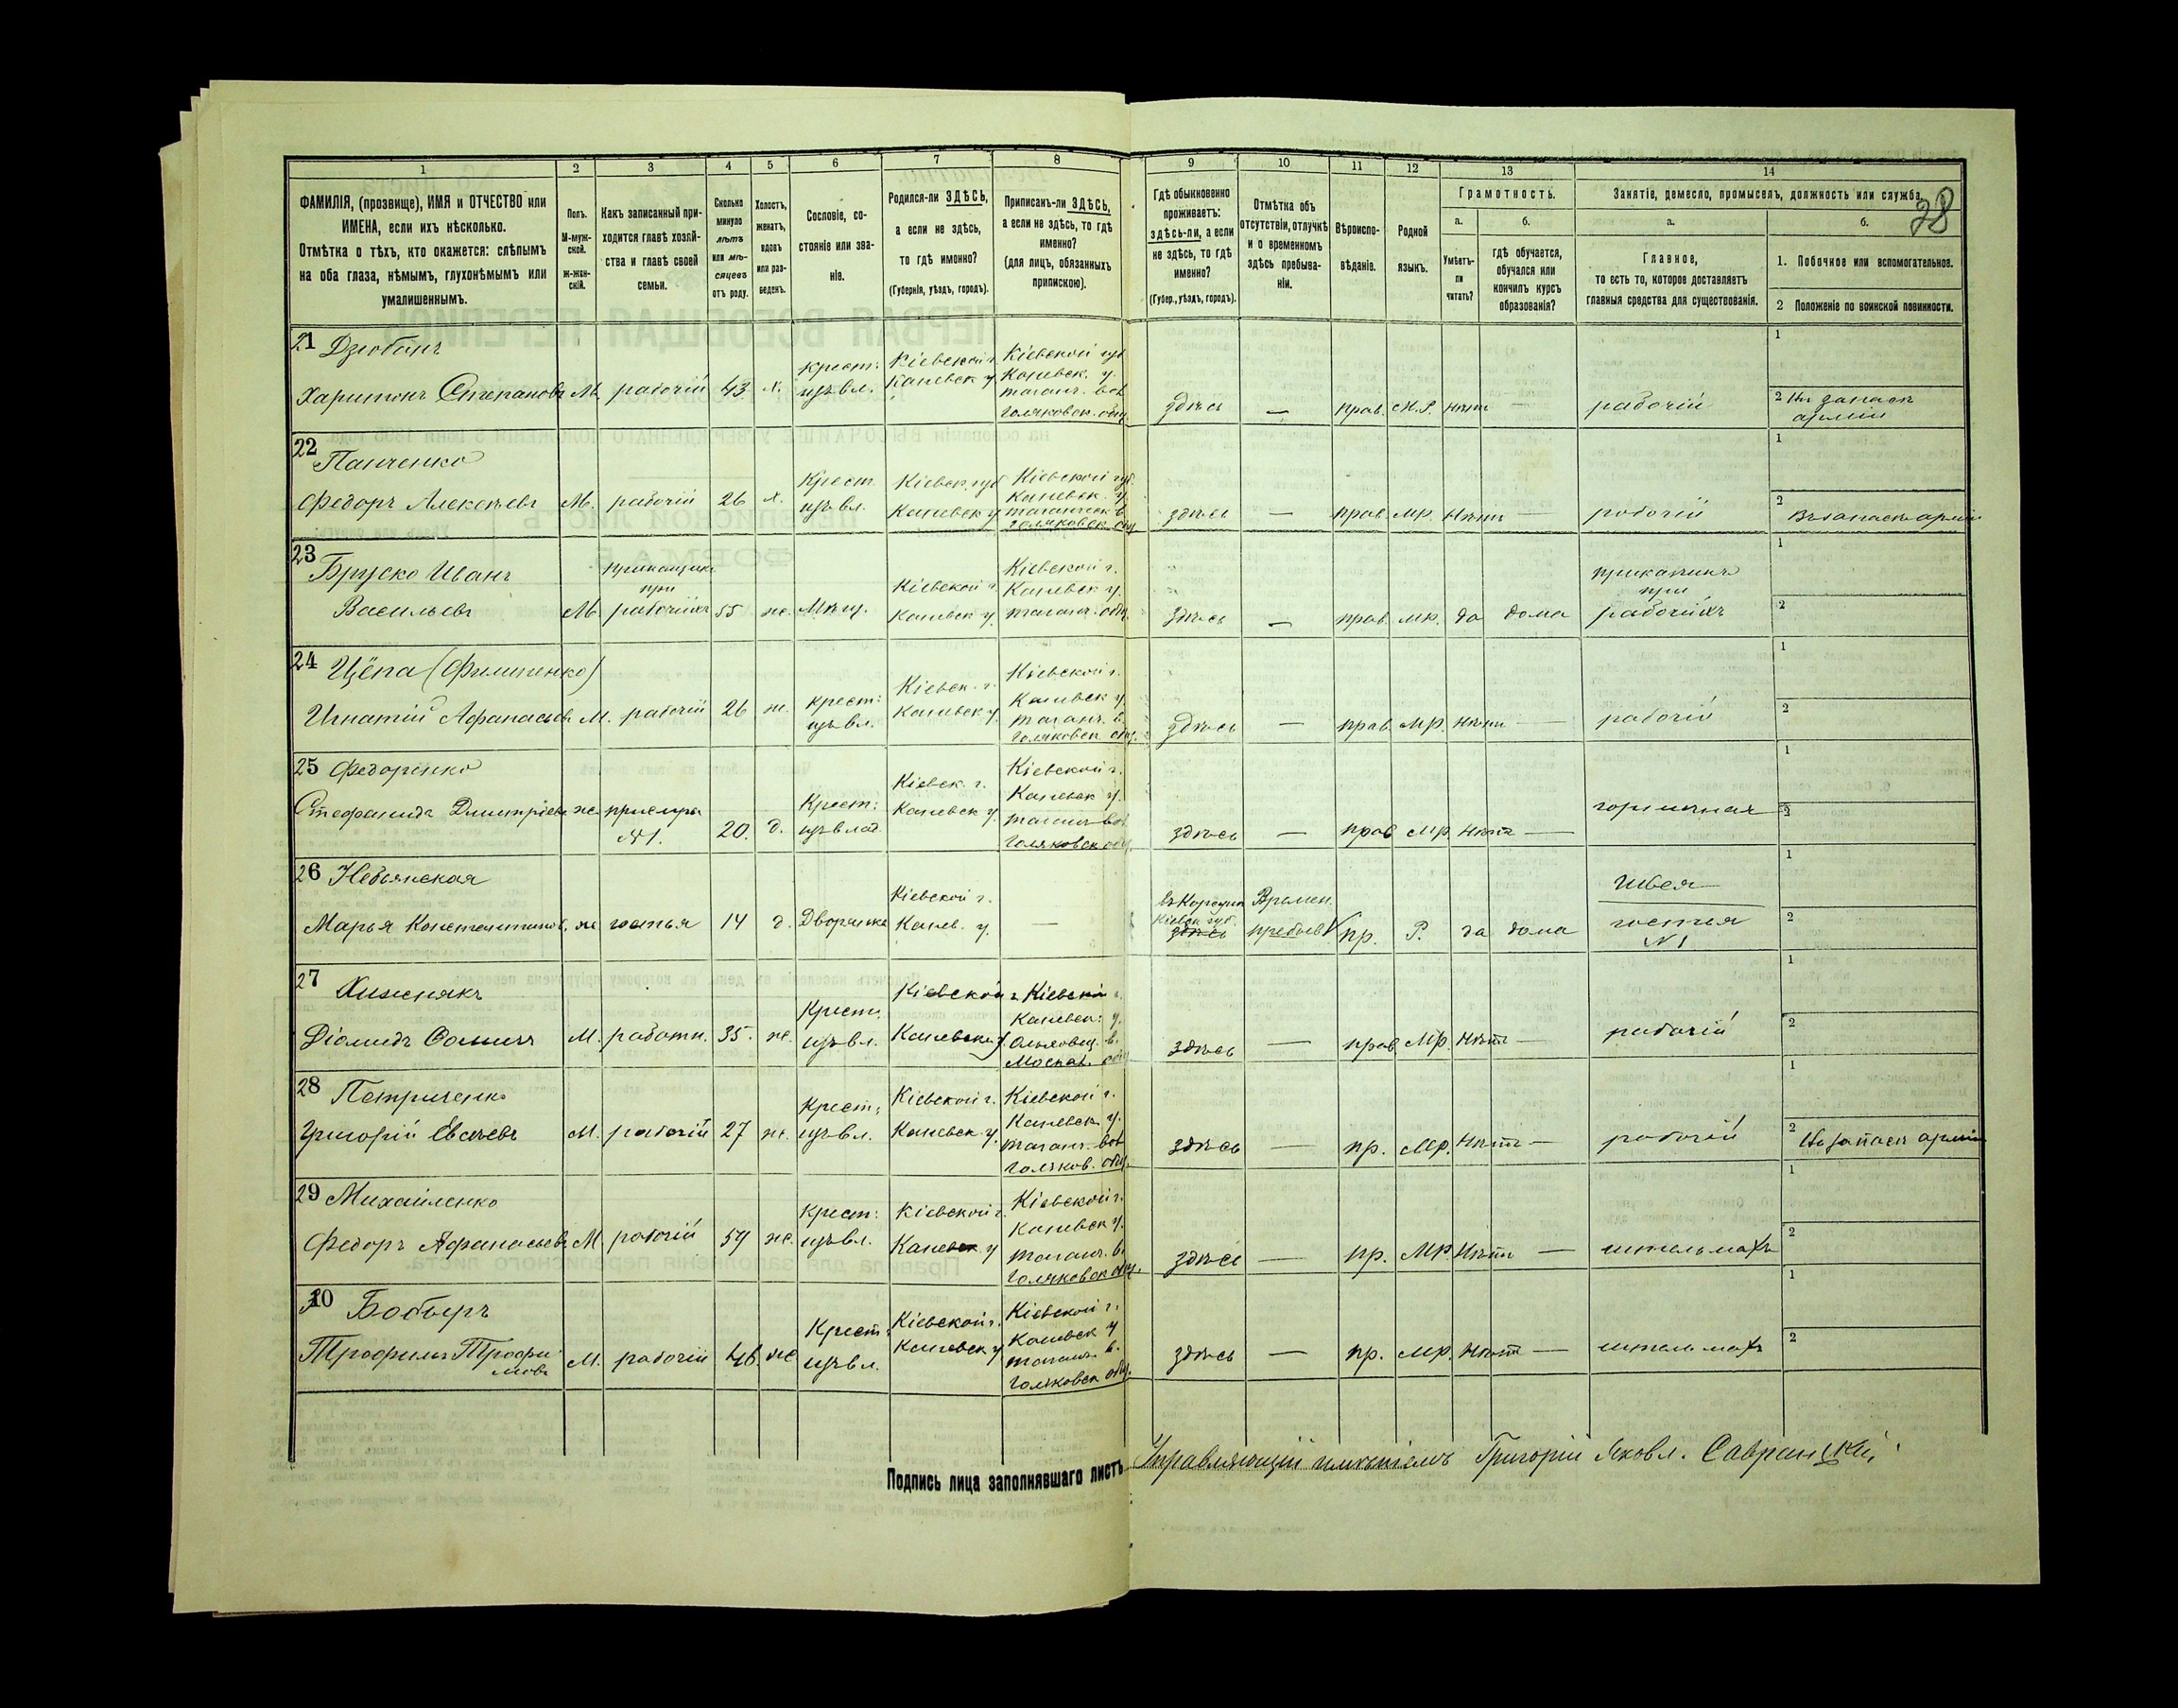 1 2 3 4 5 6 7 8 9 10 11 12 13 14
ФАМИЛІЯ, (прозвище), ИМЯ и ОТЧЕСТВО или
ИМЕНА, если ихъ нѣсколько.
Отмѣтка о тѣхъ, кто окажется: слѣпымъ
на оба глаза, нѣмымъ, глухонѣмымъ или
умалишеннымъ.
Полъ.
М-муж-
ской.
ж-жен-
скій.
Какъ записанный при-
ходится главѣ хозяй-
ства и главѣ своей
семьи.
Сколько
минуло
лѣтъ
или мѣ-
сяцевъ
отъ роду.
Холостъ,
женатъ,
вдовъ
или раз-
веденъ.
Сословіе, со-
стояніе или зва-
ніе.
Родился-ли ЗДѢСЬ,
а если не здѣсь,
то гдѣ именно?
(Губернія, уѣздъ, городъ).
Приписанъ-ли ЗДѢСЬ,
а если не здѣсь, то гдѣ
именно?
(для лицъ, обязанныхъ
припискою).
Гдѣ обыкновенно
проживаетъ:
здѣсь-ли, а если
не здѣсь, то гдѣ
именно?
(Губер., уѣздъ, городъ).
Отмѣтка объ
отсутствіи, отлучкѣ
и о временномъ
здѣсь пребыва-
ніи.
Вѣроиспо-
вѣданіе.
Родной
языкъ.
Грамотность.
а. б.
Умѣетъ-
ли
читать?
гдѣ обучается,
обучался или
кончилъ курсъ
образованія?
Занятіе, ремесло, промыселъ, должность или служба.
38
а. б.
Главное,
то есть то, которое доставляетъ
главныя средства для существованія.
1. Побочное или вспомогательное.
2 Положеніе по воинской повинности.
21 Дзюбанъ
Харитонъ Степановъ М. рабочій 43 х.
крест:
изъ вл.
Кіевской г.
Каневск у.
Кіевской губ
Каневск. у.
таганч. вол
Голяковск. общ.
здѣсь — прав. М.Р. нѣтъ — рабочій
1
2 Въ запасѣ
арміи
22
Панченко
Федоръ Алексѣевъ М. рабочій 26 х.
Крест
изъ вл.
Кіевск. губ
Каневск у
Кіевской губ.
Каневск. у.
таганческ в.
Голяковск общ
здѣсь — прав. мр. Нѣтъ — рабочій
1
2 Въ запасѣ арміи
23
Бруско Иванъ
Васильевъ М.
прикащикъ
при
рабочихъ 55 ж. Мѣщ.
Кіевской г.
Каневск у.
Кіевской г.
Каневск у.
таганч. общ.
здѣсь — прав. мр. да дома
прикащикъ
при
рабочихъ
1
2
24 Цёпа (Филипенко)
Игнатій Афанасьевъ М. рабочій 26 ж.
крест:
изъ вл.
Кіевск. г.
Каневск у.
Кіевской г.
Каневск у.
таганч. в.
Голяковск общ.
здѣсь — прав. мр. нѣтъ — рабочій
1
2
25 Федоренко
Стефанида Дмитріева ж. прислуга
№1. 20. д.
Крест:
изъ влад.
Кіевск. г.
Каневск у.
Кіевской г.
Каневск у.
таганч вол.
Голяковск общ.
здѣсь — прав мр. Нѣтъ — горничная
1
2
26
Марья Константинов. ж гостья 14 д. Дворянка
Кіевской г.
Канев. у.
—
Кіевск. губ.
здѣсь
Времен.
пребыв. пр. Р. да дома
Швея
гостья
№1
1
2
27
Хижнякъ
Діомидъ М. работн. 35. ж.
Крест.
изъ вл.
Кіевской г.
Каневск. у.
Кіевской г.
Каневск: у.
здѣсь — прав мр. Нѣтъ — рабочій
1
2
28 Петриченко
Григорій Евсѣевъ М. рабочій 27 ж.
Крест:
изъ вл.
Кіевской г.
Каневск у.
Кіевской г.
Каневск у.
таганч. вол
Голяков. общ.
здѣсь — пр. мр. Нѣтъ — рабочій
1
2 Въ запасѣ арміи
29 Михайленко
Федоръ Афанасьевъ М рабочій ж.
Крест:
изъ вл.
Кіевской г.
Каневск у
Кіевской г.
Каневск у.
таганч. в.
Голяковск общ.
здѣсь — пр. мр. Нѣтъ — штельмахъ
1
2
30 Бобыръ
Трофимъ Трофи
мовъ М. рабочій 46. ж
Крест:
изъ вл.
Кіевской г.
Каневск у
Кіевской г.
Каневск у
таганч. в.
Голяковск общ.
здѣсь — пр. мр. Нѣтъ — штельмахъ
1
2
Подпись лица заполнявшаго листъ Управляющій имѣніемъ Григорій Яковл. Савранскій.